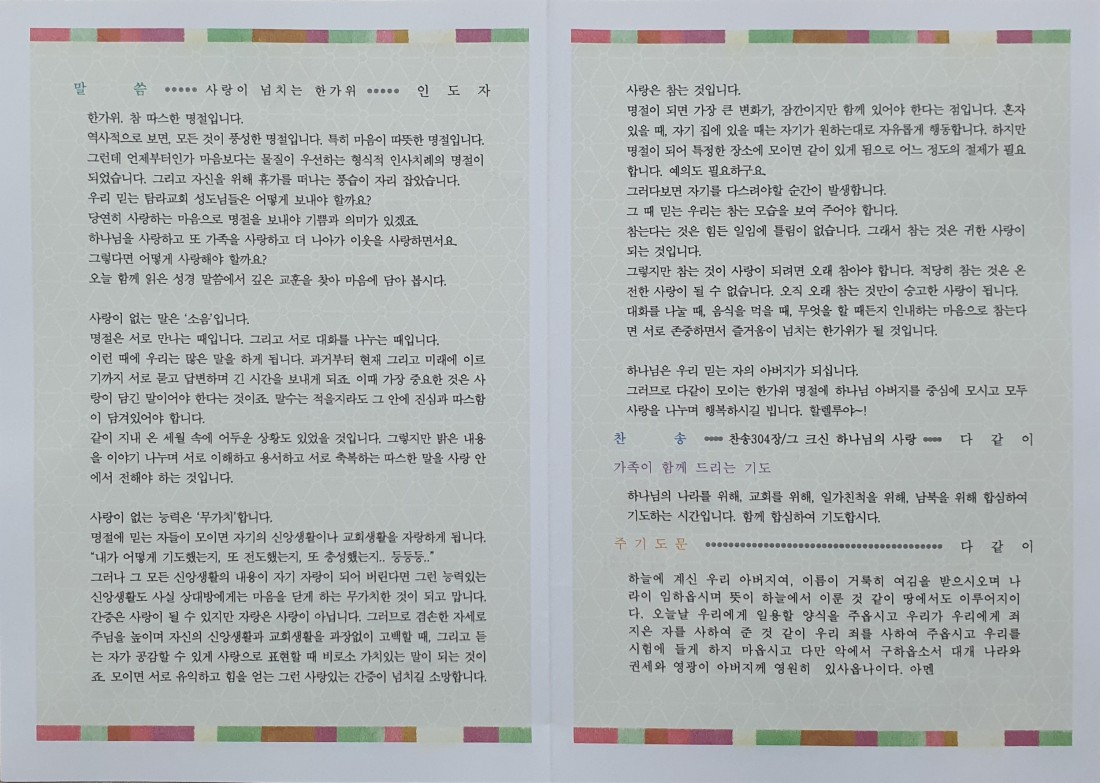 말 씀 ●●●●● 사랑이 넘치는 한가위 ●●●●● 인 도 자
한가위, 참 따스한 명절입니다.
역사적으로 보면, 모든 것이 풍성한 명절입니다. 특히 마음이 따뜻한 명절입니다.
그런데 언제부터인가 마음보다는 물질이 우선하는 형식적 인사치레의 명절이
되었습니다. 그리고 자신을 위해 휴가를 떠나는 풍습이 자리 잡았습니다.
우리 믿는 탐라교회 성도님들은 어떻게 보내야 할까요?
당연히 사랑하는 마음으로 명절을 보내야 기쁨과 의미가 있겠죠.
하나님을 사랑하고 또 가족을 사랑하고 더 나아가 이웃을 사랑하면서요.
그렇다면 어떻게 사랑해야 할까요?
오늘 함께 읽은 성경 말씀에서 깊은 교훈을 찾아 마음에 담아 봅시다.
사랑이 없는 말은 '소음'입니다.
명절은 서로 만나는 때입니다. 그리고 서로 대화를 나누는 때입니다.
이런 때에 우리는 많은 말을 하게 됩니다. 과거부터 현재 그리고 미래에 이르
기까지 서로 묻고 답변하며 긴 시간을 보내게 되죠. 이때 가장 중요한 것은 사
랑이 담긴 말이어야 한다는 것이죠. 말수는 적을지라도 그 안에 진심과 따스함
이 담겨있어야 합니다.
같이 지내 온 세월 속에 어두운 상황도 있었을 것입니다. 그렇지만 밝은 내용
을 이야기 나누며 서로 이해하고 용서하고 서로 축복하는 따스한 말을 사랑 안
에서 전해야 하는 것입니다.
사랑이 없는 능력은 '무가치'합니다.
명절에 믿는 자들이 모이면 자기의 신앙생활이나 교회생활을 자랑하게 됩니다.
"내가 어떻게 기도했는지, 또 전도했는지, 또 충성했는지.. 등등등.."
그러나 그 모든 신앙생활의 내용이 자기 자랑이 되어 버린다면 그런 능력있는
신앙생활도 사실 상대방에게는 마음을 닫게 하는 무가치한 것이 되고 맙니다.
간증은 사랑이 될 수 있지만 자랑은 사랑이 아닙니다. 그러므로 겸손한 자세로
주님을 높이며 자신의 신앙생활과 교회생활을 과장없이 고백할 때, 그리고 듣
는 자가 공감할 수 있게 사랑으로 표현할 때 비로소 가치있는 말이 되는 것이
죠. 모이면 서로 유익하고 힘을 얻는 그런 사랑있는 간증이 넘치길 소망합니다.
사랑은 참는 것입니다.
명절이 되면 가장 큰 변화가, 잠깐이지만 함께 있어야 한다는 점입니다. 혼자
있을 때, 자기 집에 있을 때는 자기가 원하는대로 자유롭게 행동합니다. 하지만
명절이 되어 특정한 장소에 모이면 같이 있게 됨으로 어느 정도의 절제가 필요
합니다. 예의도 필요하구요.
그러다보면 자기를 다스려야할 순간이 발생합니다.
그 때 믿는 우리는 참는 모습을 보여 주어야 합니다.
참는다는 것은 힘든 일임에 틀림이 없습니다. 그래서 참는 것은 귀한 사랑이
되는 것입니다.
그렇지만 참는 것이 사랑이 되려면 오래 참아야 합니다. 적당히 참는 것은 온
전한 사랑이 될 수 없습니다. 오직 오래 참는 것만이 숭고한 사랑이 됩니다.
대화를 나눌 때, 음식을 먹을 때, 무엇을 할 때든지 인내하는 마음으로 참는다
면 서로 존중하면서 즐거움이 넘치는 한가위가 될 것입니다.
하나님은 우리 믿는 자의 아버지가 되십니다.
그러므로 다같이 모이는 한가위 명절에 하나님 아버지를 중심에 모시고 모두
사랑을 나누며 행복하시길 빕니다. 할렐루야~!
찬 송 ●●●● 찬송304장/그 크신 하나님의 사랑 ●●●● 다 같 이
가족이 함께 드리는 기도
하나님의 나라를 위해, 교회를 위해, 일가친척을 위해, 남북을 위해 합심하여
기도하는 시간입니다. 함께 합심하여 기도합시다.
주기도문 ●●●●●●●●●●●●●●●●●●●●●●●●●●●●●●●●●●●●●●●● 다 같 이
하늘에 계신 우리 아버지여, 이름이 거룩히 여김을 받으시오며 나
라이 임하옵시며 뜻이 하늘에서 이룬 것 같이 땅에서도 이루어지이
다. 오늘날 우리에게 일용할 양식을 주옵시고 우리가 우리에게 죄
지은 자를 사하여 준 것 같이 우리 죄를 사하여 주옵시고 우리를
시험에 들게 하지 마옵시고 다만 악에서 구하옵소서 대개 나라와
권세와 영광이 아버지께 영원히 있사옵나이다. 아멘